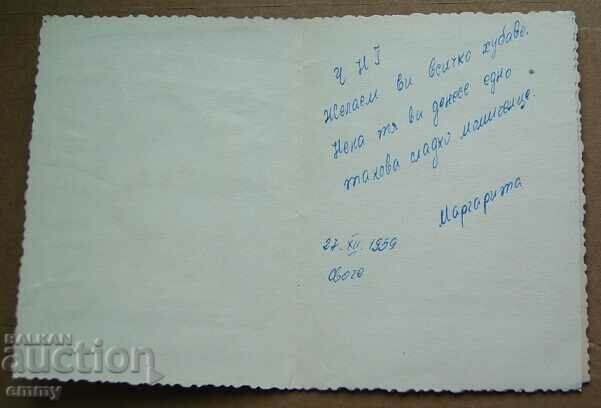 Ч Н Г
Желаем ви всичко хубаво.
Нека тя ви донесе едно
такова сладко момиченце.
Маргарита
27. XII. 1959
Овоге
БАЛКАН
auction
emmy